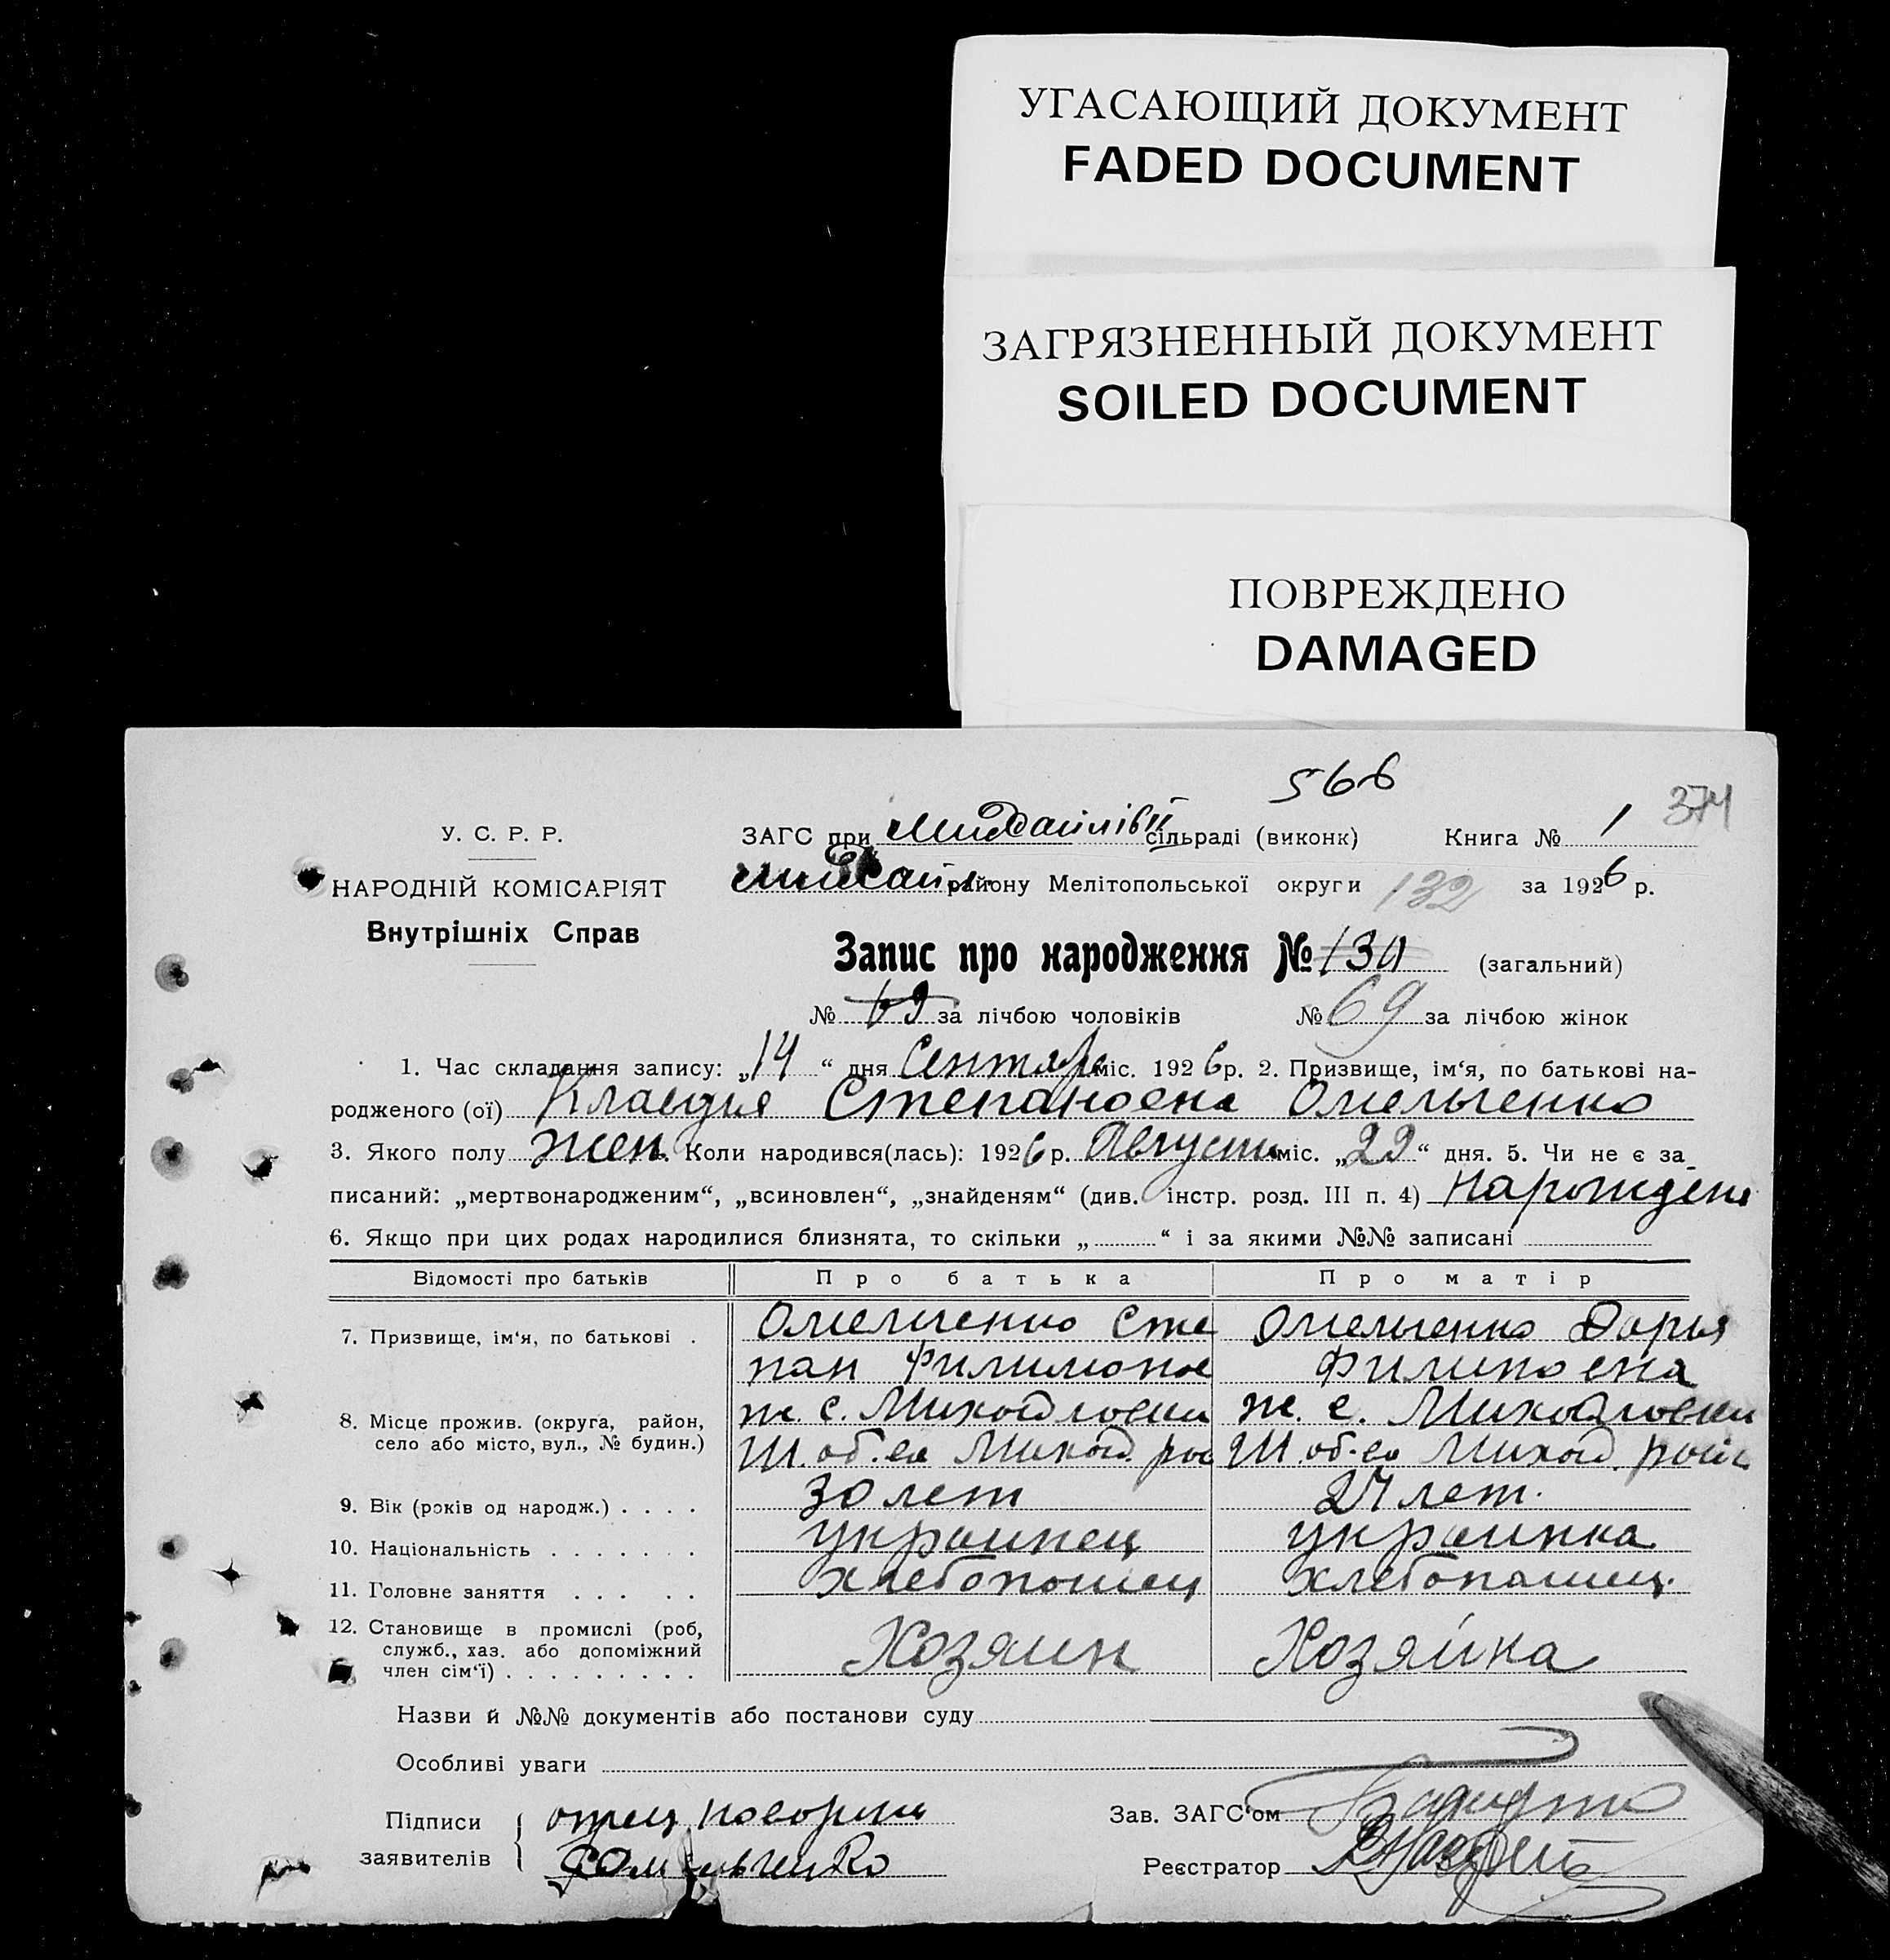 УГАСАЮЩИЙ ДОКУМЕНТ
FADED DOCUMENT
ЗАГРЯЗНЕННЫЙ ДОКУМЕНТ
SOILED DOCUMENT
ПОВРЕЖДЕНО
DAMAGED
566
374
У. С. Р. Р.
НАРОДНІЙ КОМІСАРІЯТ
Внутрішніх Справ
ЗАГС при Михайлівській сільраді (виконк) Книга № 1
Михайл. району Мелітопольської округи 132 за 1926 р.
Запис про народження № (загальний)
№ за лічбою чоловіків № 69 за лічбою жінок
1. Час складання запису: „14“ дня Сентяр міс. 1926 р. 2. Призвище, ім‘я, по батькові на-
родженого (ої) Клавдия Степановна Омельченко
3. Якого полу жен. Коли народився(лась): 1926 р. Августа міс. „22“ дня. 5. Чи не є за-
писаний: „мертвонародженим“, „всиновлен“, „знайденям“ (див. інстр. розд. III п. 4) Нарождена
6. Якщо при цих родах народилися близнята, то скільки „ “ і за якими №№ записані
Відомості про батьків Про батька Про матір
7. Призвище, ім‘я, по батькові . Омельченко Сте Омельченко Дарья
пан Филимонов Филиповна
8. Місце прожив. (округа, район, ж. с. Михайловки ж. с. Михайловки
село або місто, вул., № будин.) Ш. об-ва Михайл. Ш. об-ва Михайл.
9. Вік (років од народж.) . . . . 30 лет 27 лет.
10. Національність . . . . . . . украинец украинка
11. Головне заняття . . . . . хлебопашец хлебопашец.
12. Становище в промислі (роб, служб., хаз. або допоміжний член сім‘ї) . . . . . . . . . Хозяин Хозяйка
Назви й №№ документів або постанови суду
Особливі уваги
Підписи заявителів отец
Омельченко
Зав. ЗАГС‘ом
Реєстратор